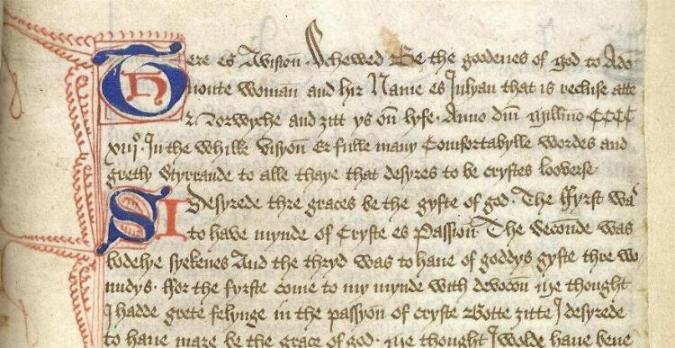 Here es A visioun Schewed Be the goodenes of god to Ade
uoute Woman and hir Name es Julyan that is recluse atte
Norwyche and zitt ys oun lyfe. Anno dni millmo CCCC
xiijo. In the whilk visyoun Er fulle many Comfortabylle wordes and
gretly Styrrande to alle thaye that desyres to be crystes looverse
I Desyrede thre graces be the gyfte of god. The ffyrst was
to have mynde of Cryste es Passioun. The Secounde was
bodelye syekenes And the thryd was to haue of goddys gyfte thre wo
undys. ffor the fyrste come to my mynde with devocoun me thought
I hadde grete felynge in the passyon of cryste Botte zitte I desyrede
to haue mare be the grace of god. me thought I wolde haue bene